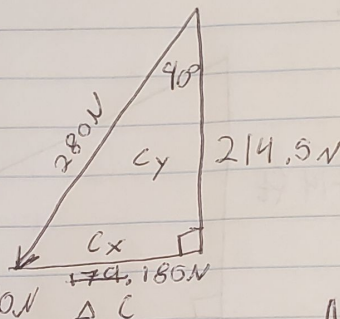 40°
280N
Cy
214.5N
Cx
180N
0N
Δ C